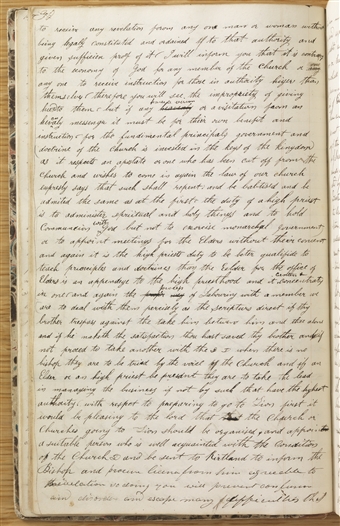 to receive any revelation from any one man or woman without
being legally constituted and ordained to that authority and
given sufficient proof of it I will inform you that it is contrary
to the economy of God for any member of the Church or
any one to receive instruction for those in authority higher than
themselves, therefore you will see the impropriety of giving
heed to them, but if any have a vision or a visitation from an
heavenly messenger it must be for their own benefit and
instruction for the fundamental principals government and
doctrine of the church is invested in the keys of the kingdom
as it respects an apostate or one who has been cut off from the
Church and wishes to come in again the law of our church
expressly says that such shall repent and be baptised and be
admited the same as at the first. the duty of a high priest
is to administer spiritual and holy things and to hold
Communion with God but not to exercise monarchal government
or to appoint meetings for the Elders without their consent
and again it is the high priests duty to be better qualified to
teach principles and doctrines than the Elders for the office of
Elders is an appendage to the high priesthood and it concentrates
in one and again the process of Labouring with a member we
are to deal with them precisely as the scripture direct if thy
brother trespass against the take him between him and thee alone
and if he maketh the satisfaction thou hast saved thy brother and if
not proced to take another with thee &c when there is no
bishop they are to be tried by the voice of the Church and if an
Elder or an high priest be present they are to take the lead
in managing the business if not by such that have the highest
authority. with respect to prepairing to go to Zion first it
would be pleasing to the lord that the Church or
Churches going to Zion should be organised and appoint
a suitable person who is well acquainted with the Condition
of the Church & and be sent to Kirtland to inform the
Bishop and procure licence from him agreeable to
the revelation so doing you will prevent confusion
and disorder and escape many difficulties that